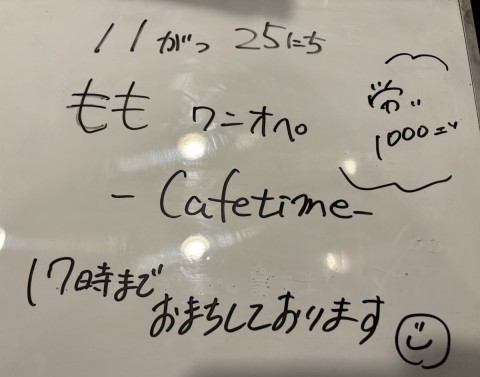 11がつ 25にち
もも ワニオペ
- Cafetime -
17時まで
おまちしております
1000エン